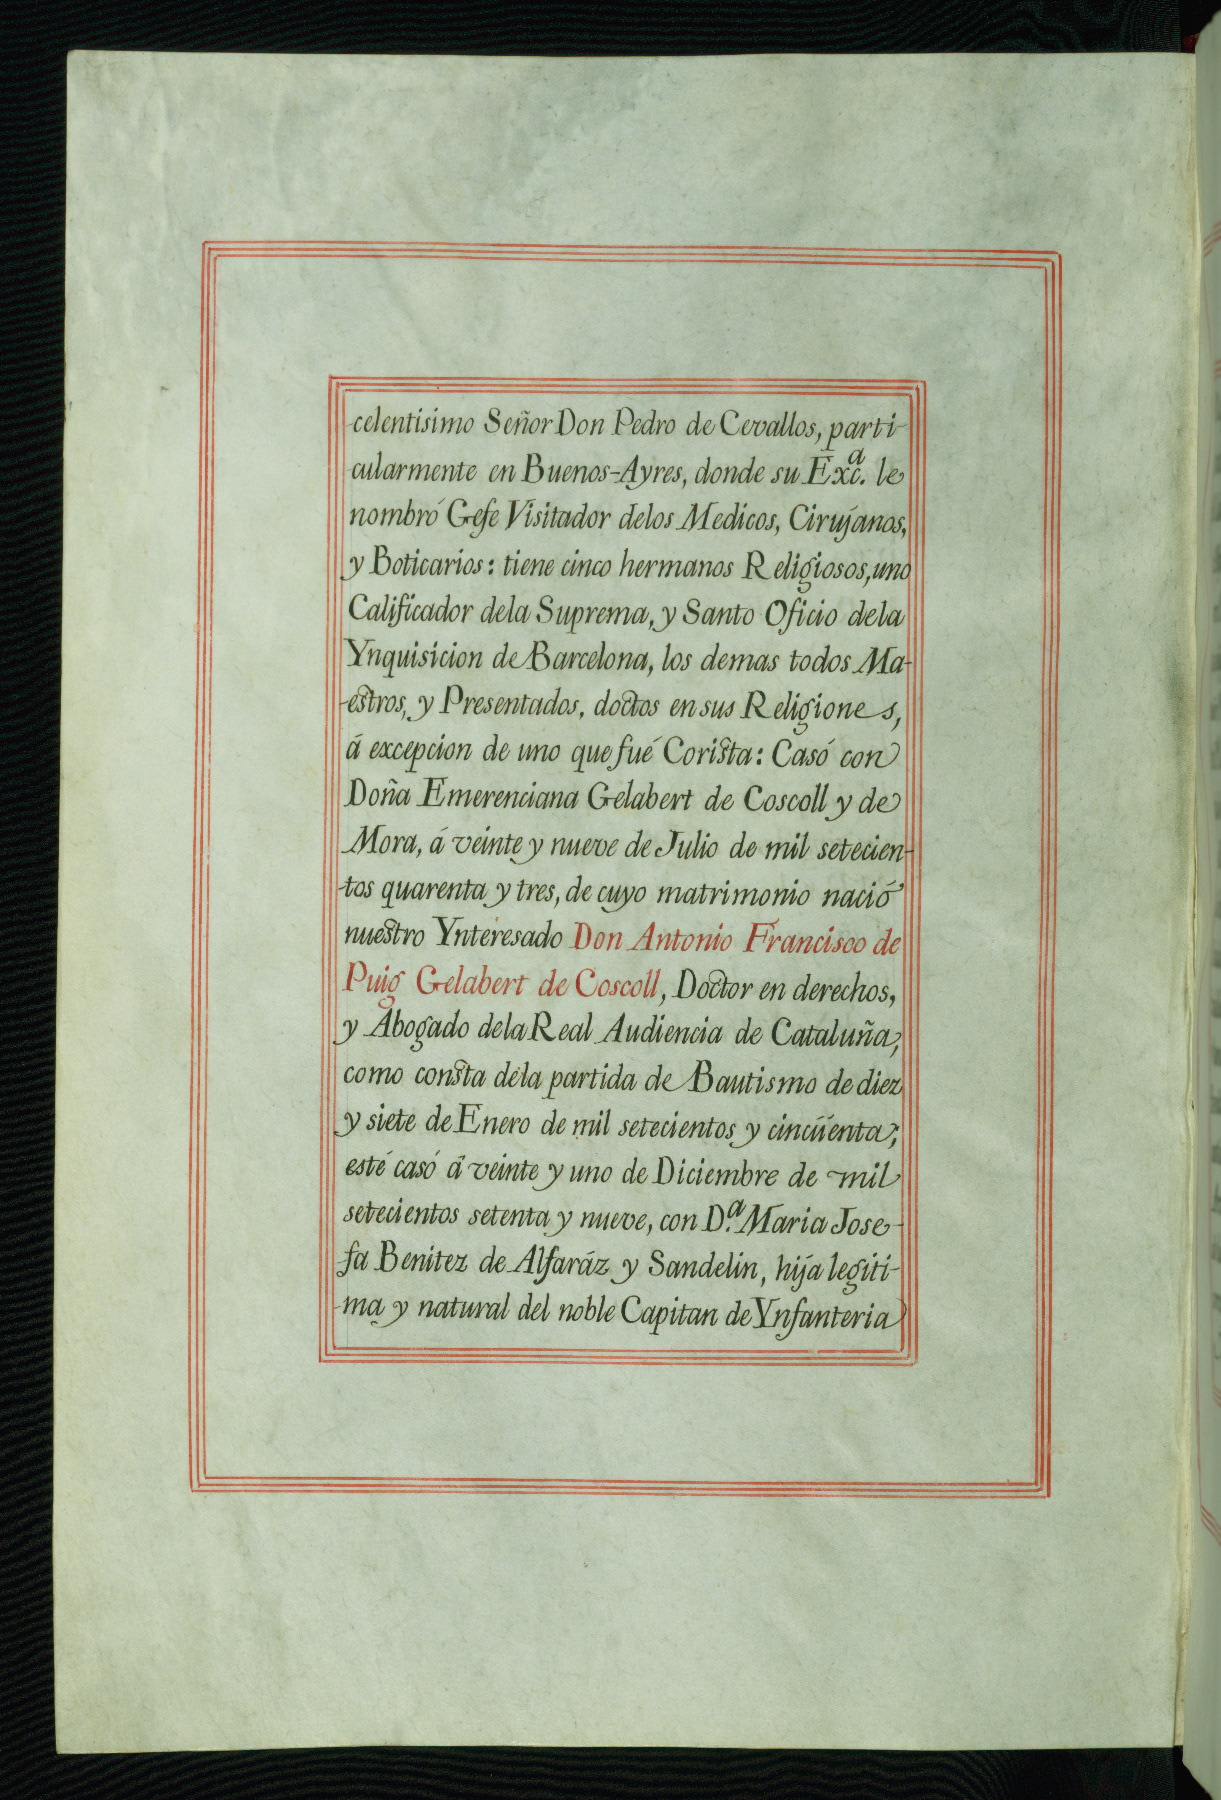 -celentisimo Señor Don Pedro de Cevallos, parti-
cularmente en Buenos-Ayres, donde su Exc.ª le
nombró Gefe Visitador delos Medicos, Cirujanos,
y Boticarios: tiene cinco hermanos Religiosos, uno
Calificador dela Suprema, y Santo Oficio dela
Ynquisicion de Barcelona, los demas todos Ma-
-estros, y Presentados, doctos en sus Religiones,
á excepcion de uno que fué Corista: Casó con
Doña Emerenciana Gelabert de Coscoll y de
Mora, á veinte y nueve de Julio de mil setecien-
-tos quarenta y tres, de cuyo matrimonio nació
nuestro Ynteresado Don Antonio Francisco de
Puig Gelabert de Coscoll, Doctor en derechos,
y Abogado dela Real Audiencia de Cataluña,
como consta dela partida de Bautismo de diez
y siete de Enero de mil setecientos y cincüenta;
esté casó á veinte y uno de Diciembre de mil
setecientos setenta y nueve, con D.ª Maria Jose-
fa Benitez de Alfaráz y Sandelin, hija legiti-
-ma y natural del noble Capitan de Ynfanteria